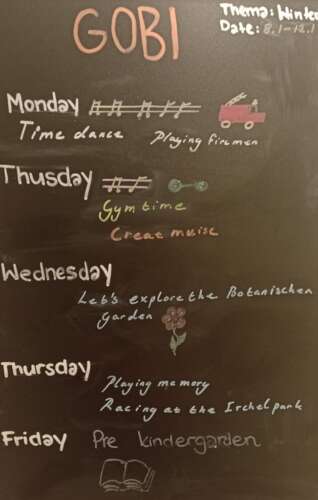 GOBI
Thema: Winter
Date: 8.1-12.1
Monday
Time dance
Playing firemen
Thusday
Gym time
Creat muisc
Wednesday
Let's explore the Botanischen
garden
Thursday
Playing memory
Racing at the Irchelpark
Friday Pre kindergarden